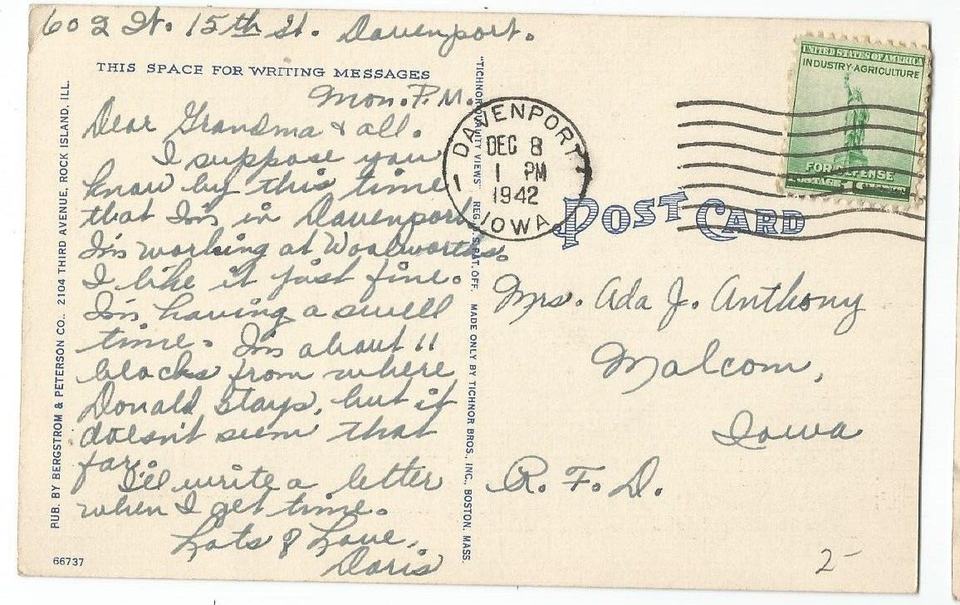 602 W. 15th St. Davenport.
THIS SPACE FOR WRITING MESSAGES
Mon. P.M.
Dear Grandma & all.
I suppose you
know by this time
that I'm in Davenport
I'm working at Woolworths.
I like it just fine.
I'm having a swell
time. I'm about 11
blocks from where
Donald stays, but it
doesn't seem that
far.
I'll write a letter
when I get time.
Lots of Love,
Doris
PUB. BY BERGSTROM & PETERSON CO., 2104 THIRD AVENUE, ROCK ISLAND, ILL.
66737
"TICHNOR QUALITY VIEWS" REG. U.S. PAT. OFF. MADE ONLY BY TICHNOR BROS., INC., BOSTON, MASS.
DAVENPORT
1
DEC 8
1 PM
1942
IOWA
UNITED STATES OF AMERICA
INDUSTRY·AGRICULTURE
FOR DEFENSE
POST CARD
Mrs. Ada J. Anthony
Malcom,
Iowa
R. F. D.
2-